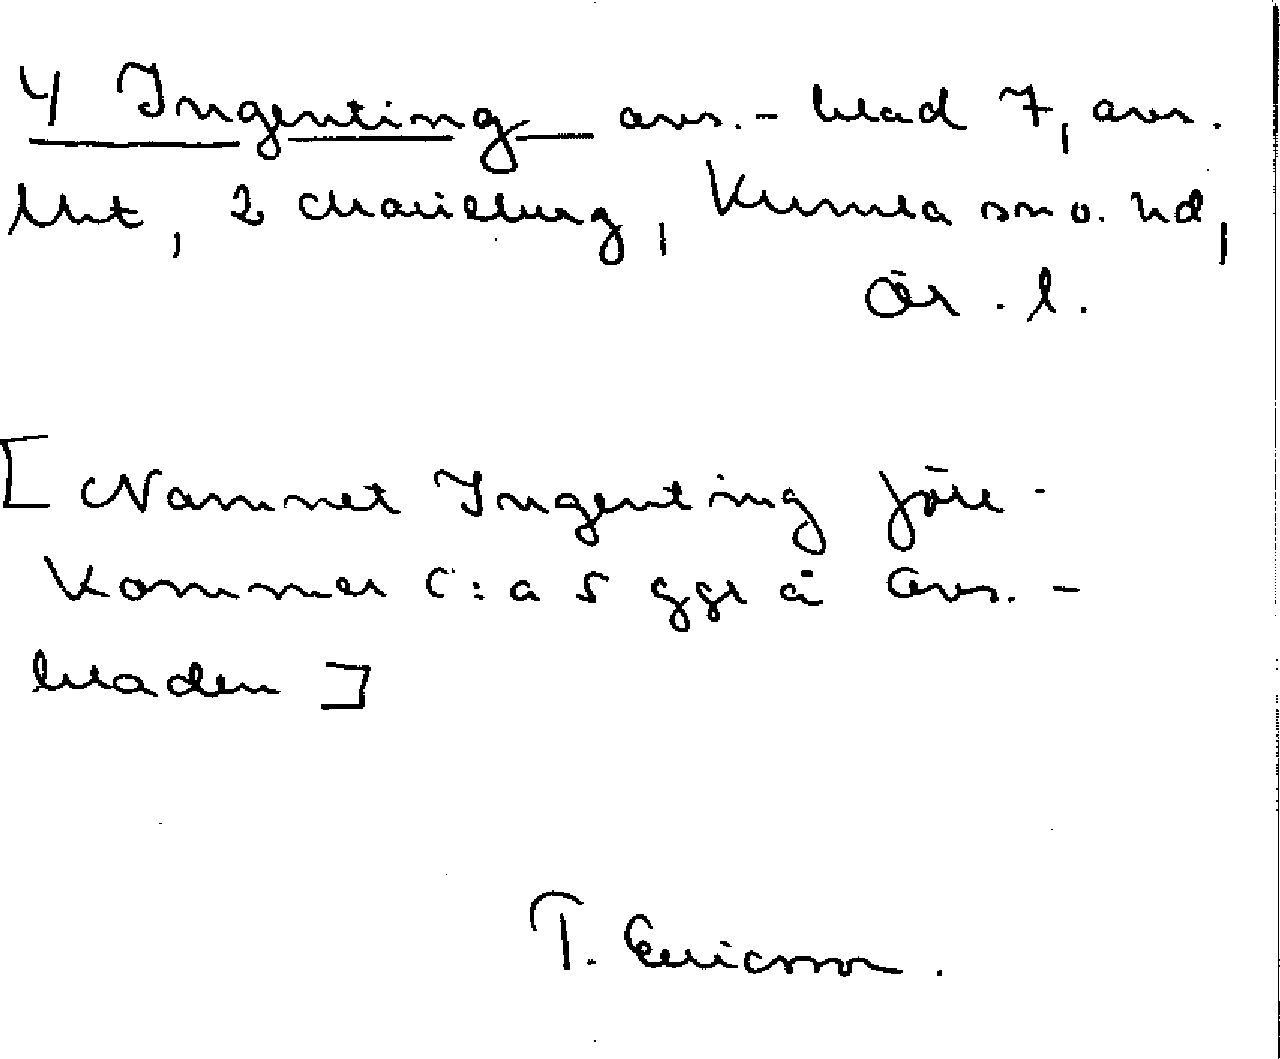 4 Ingenting avs.-blad 7, avs.
Utt, 2 Charielung, Kumla sn o. hd,
Är. l.
[Namnet Ingenting före-
kommer c:a 5 ggr å avs.-
bladen]
T. Ericsson.